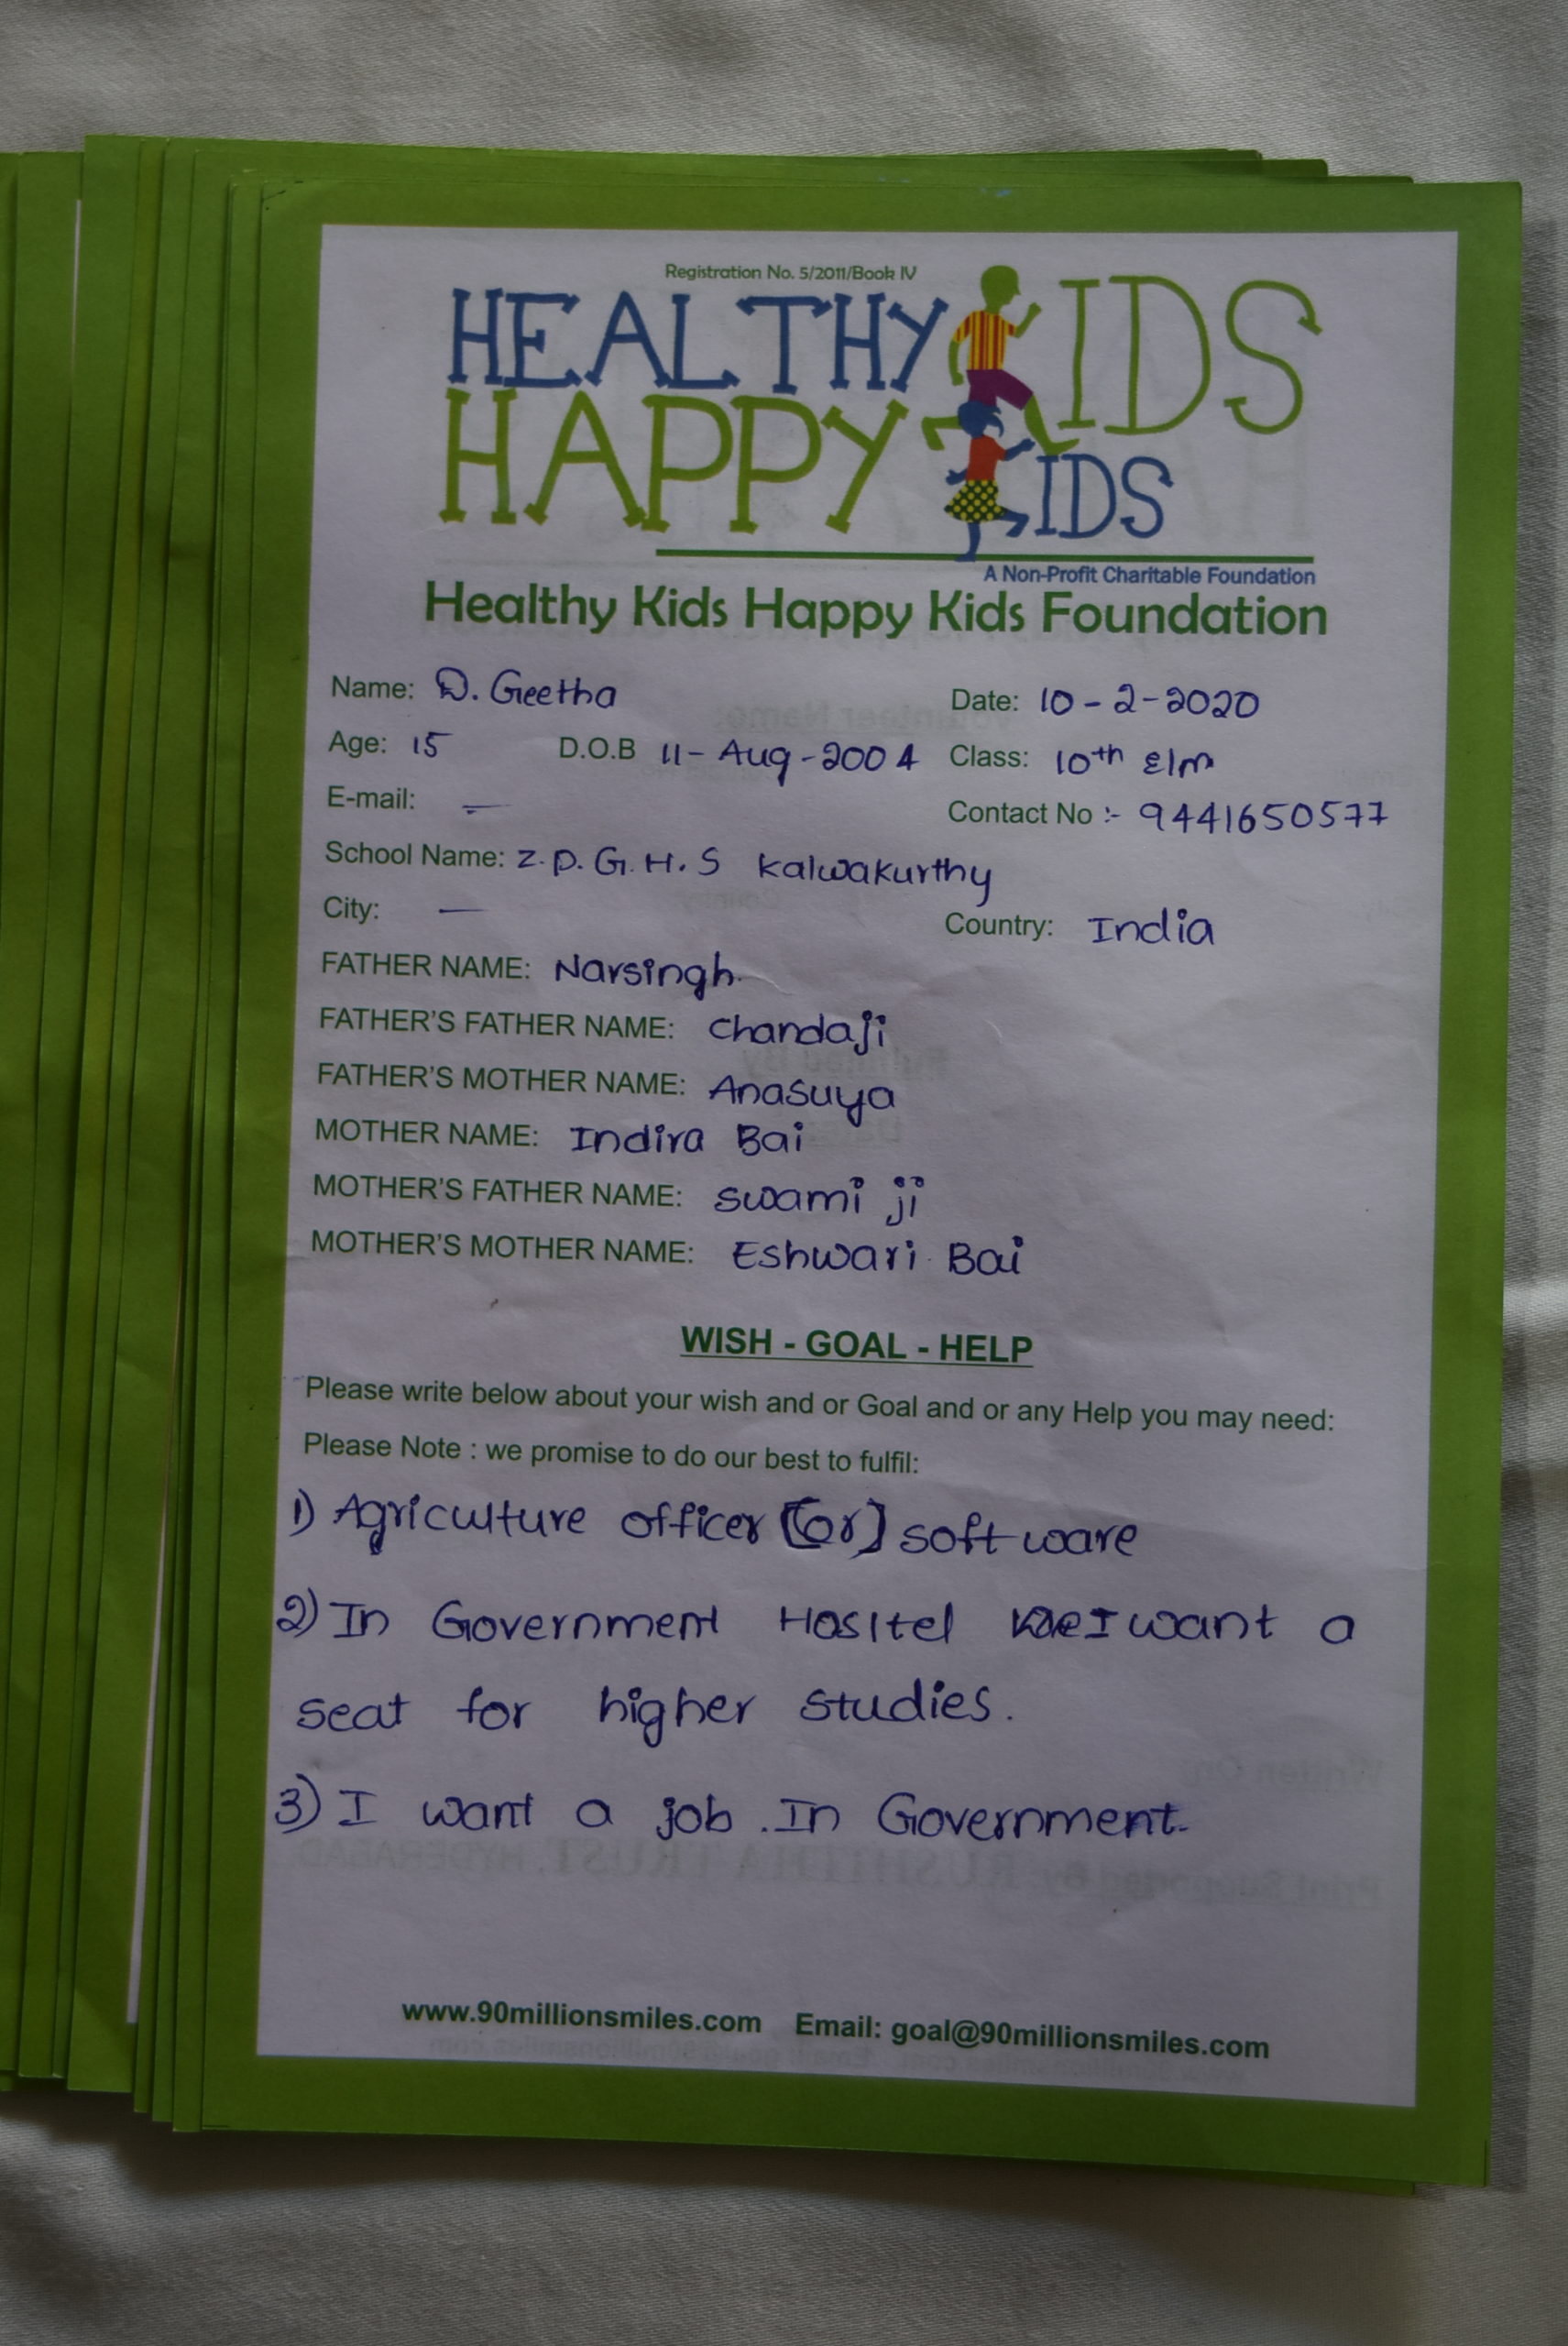 Registration No. 5/2011/Book IV
HEALTHY KIDS
HAPPY KIDS
A Non-Profit Charitable Foundation
Healthy Kids Happy Kids Foundation
Name: D. Geetha Date: 10-2-2020
Age: 15 D.O.B 11-Aug-2004 Class: 10th E/m
E-mail: — Contact No :- 9441650577
School Name: Z.P.G.H.S Kalwakurthy
City: — Country: India
FATHER NAME: Narsingh.
FATHER'S FATHER NAME: Chandaji
FATHER'S MOTHER NAME: Anasuya
MOTHER NAME: Indira Bai
MOTHER'S FATHER NAME: Swami ji
MOTHER'S MOTHER NAME: Eshwari Bai
WISH - GOAL - HELP
Please write below about your wish and or Goal and or any Help you may need:
Please Note : we promise to do our best to fulfil:
1) Agriculture officer [or] soft ware
2) In Government Hosltel I want a
seat for higher studies.
3) I want a job .In Government.
www.90millionsmiles.com Email: goal@90millionsmiles.com